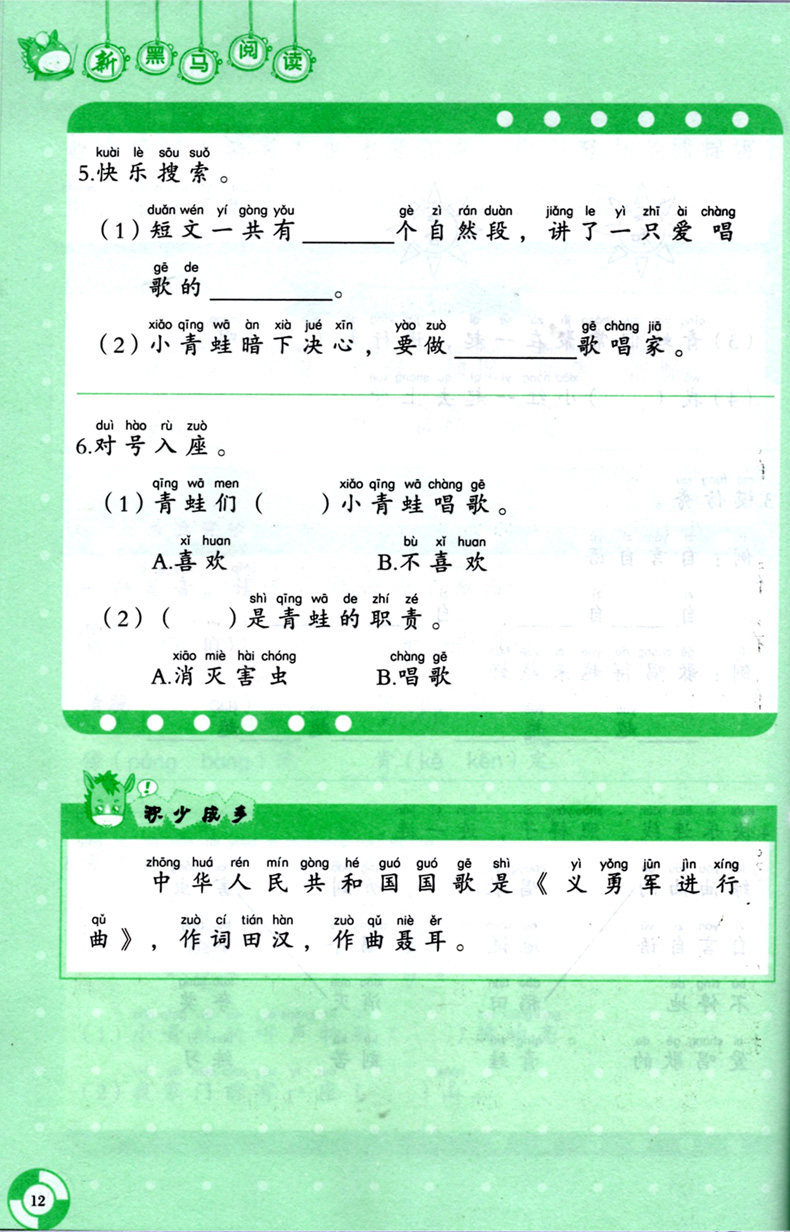 新黑马阅读
kuài lè sōu suǒ
5.快乐搜索。
duǎn wén yí gòng yǒu gè zì rán duàn jiǎng le yì zhī ài chàng
（1）短文一共有________个自然段，讲了一只爱唱
gē de
歌的__________。
xiǎo qīng wā àn xià jué xīn yào zuò gē chàng jiā
（2）小青蛙暗下决心，要做__________歌唱家。
duì hào rù zuò
6.对号入座。
qīng wā men xiǎo qīng wā chàng gē
（1）青蛙们（　　）小青蛙唱歌。
xǐ huan bù xǐ huan
A.喜欢 B.不喜欢
shì qīng wā de zhí zé
（2）（　　）是青蛙的职责。
xiāo miè hài chóng chàng gē
A.消灭害虫 B.唱歌
积少成多
zhōng huá rén mín gòng hé guó guó gē shì yì yǒng jūn jìn xíng
中华人民共和国国歌是《义勇军进行
qǔ zuò cí tián hàn zuò qǔ niè ěr
曲》，作词田汉，作曲聂耳。
12